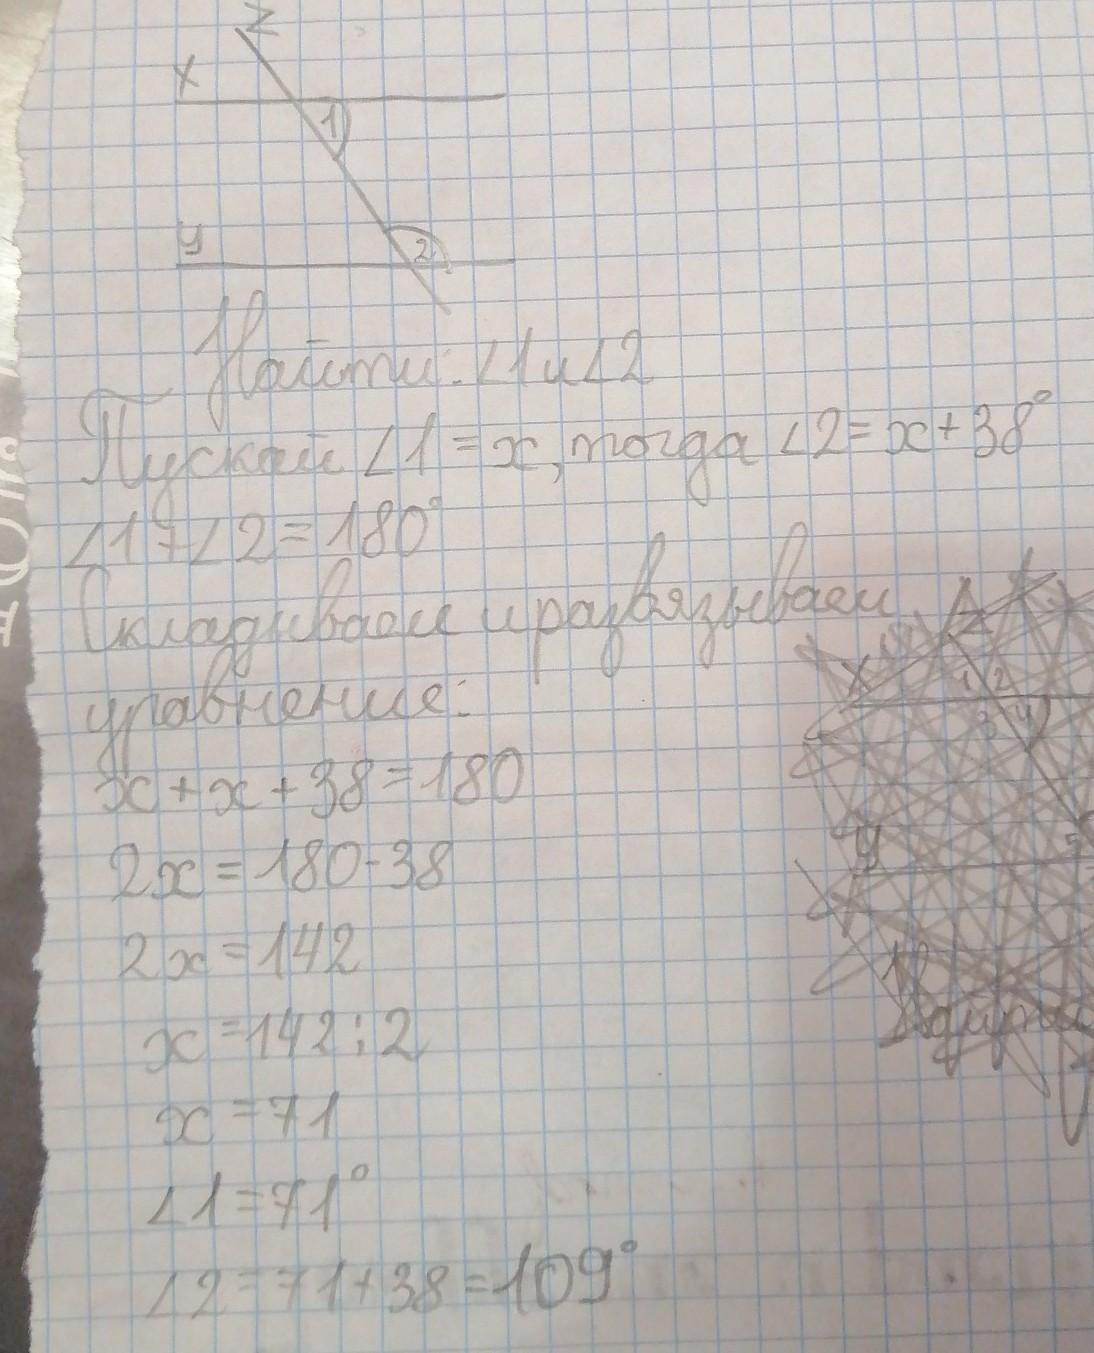 z
x
1
y
2
Найти: ∠1 и ∠2
Пускай ∠1 = x, тогда ∠2 = x + 38°
∠1 + ∠2 = 180°
Складываем и развязываем
уравнение:
x + x + 38 = 180
2x = 180 - 38
2x = 142
x = 142 : 2
x = 71
∠1 = 71°
∠2 = 71 + 38 = 109°
x 1 2
3 4
y